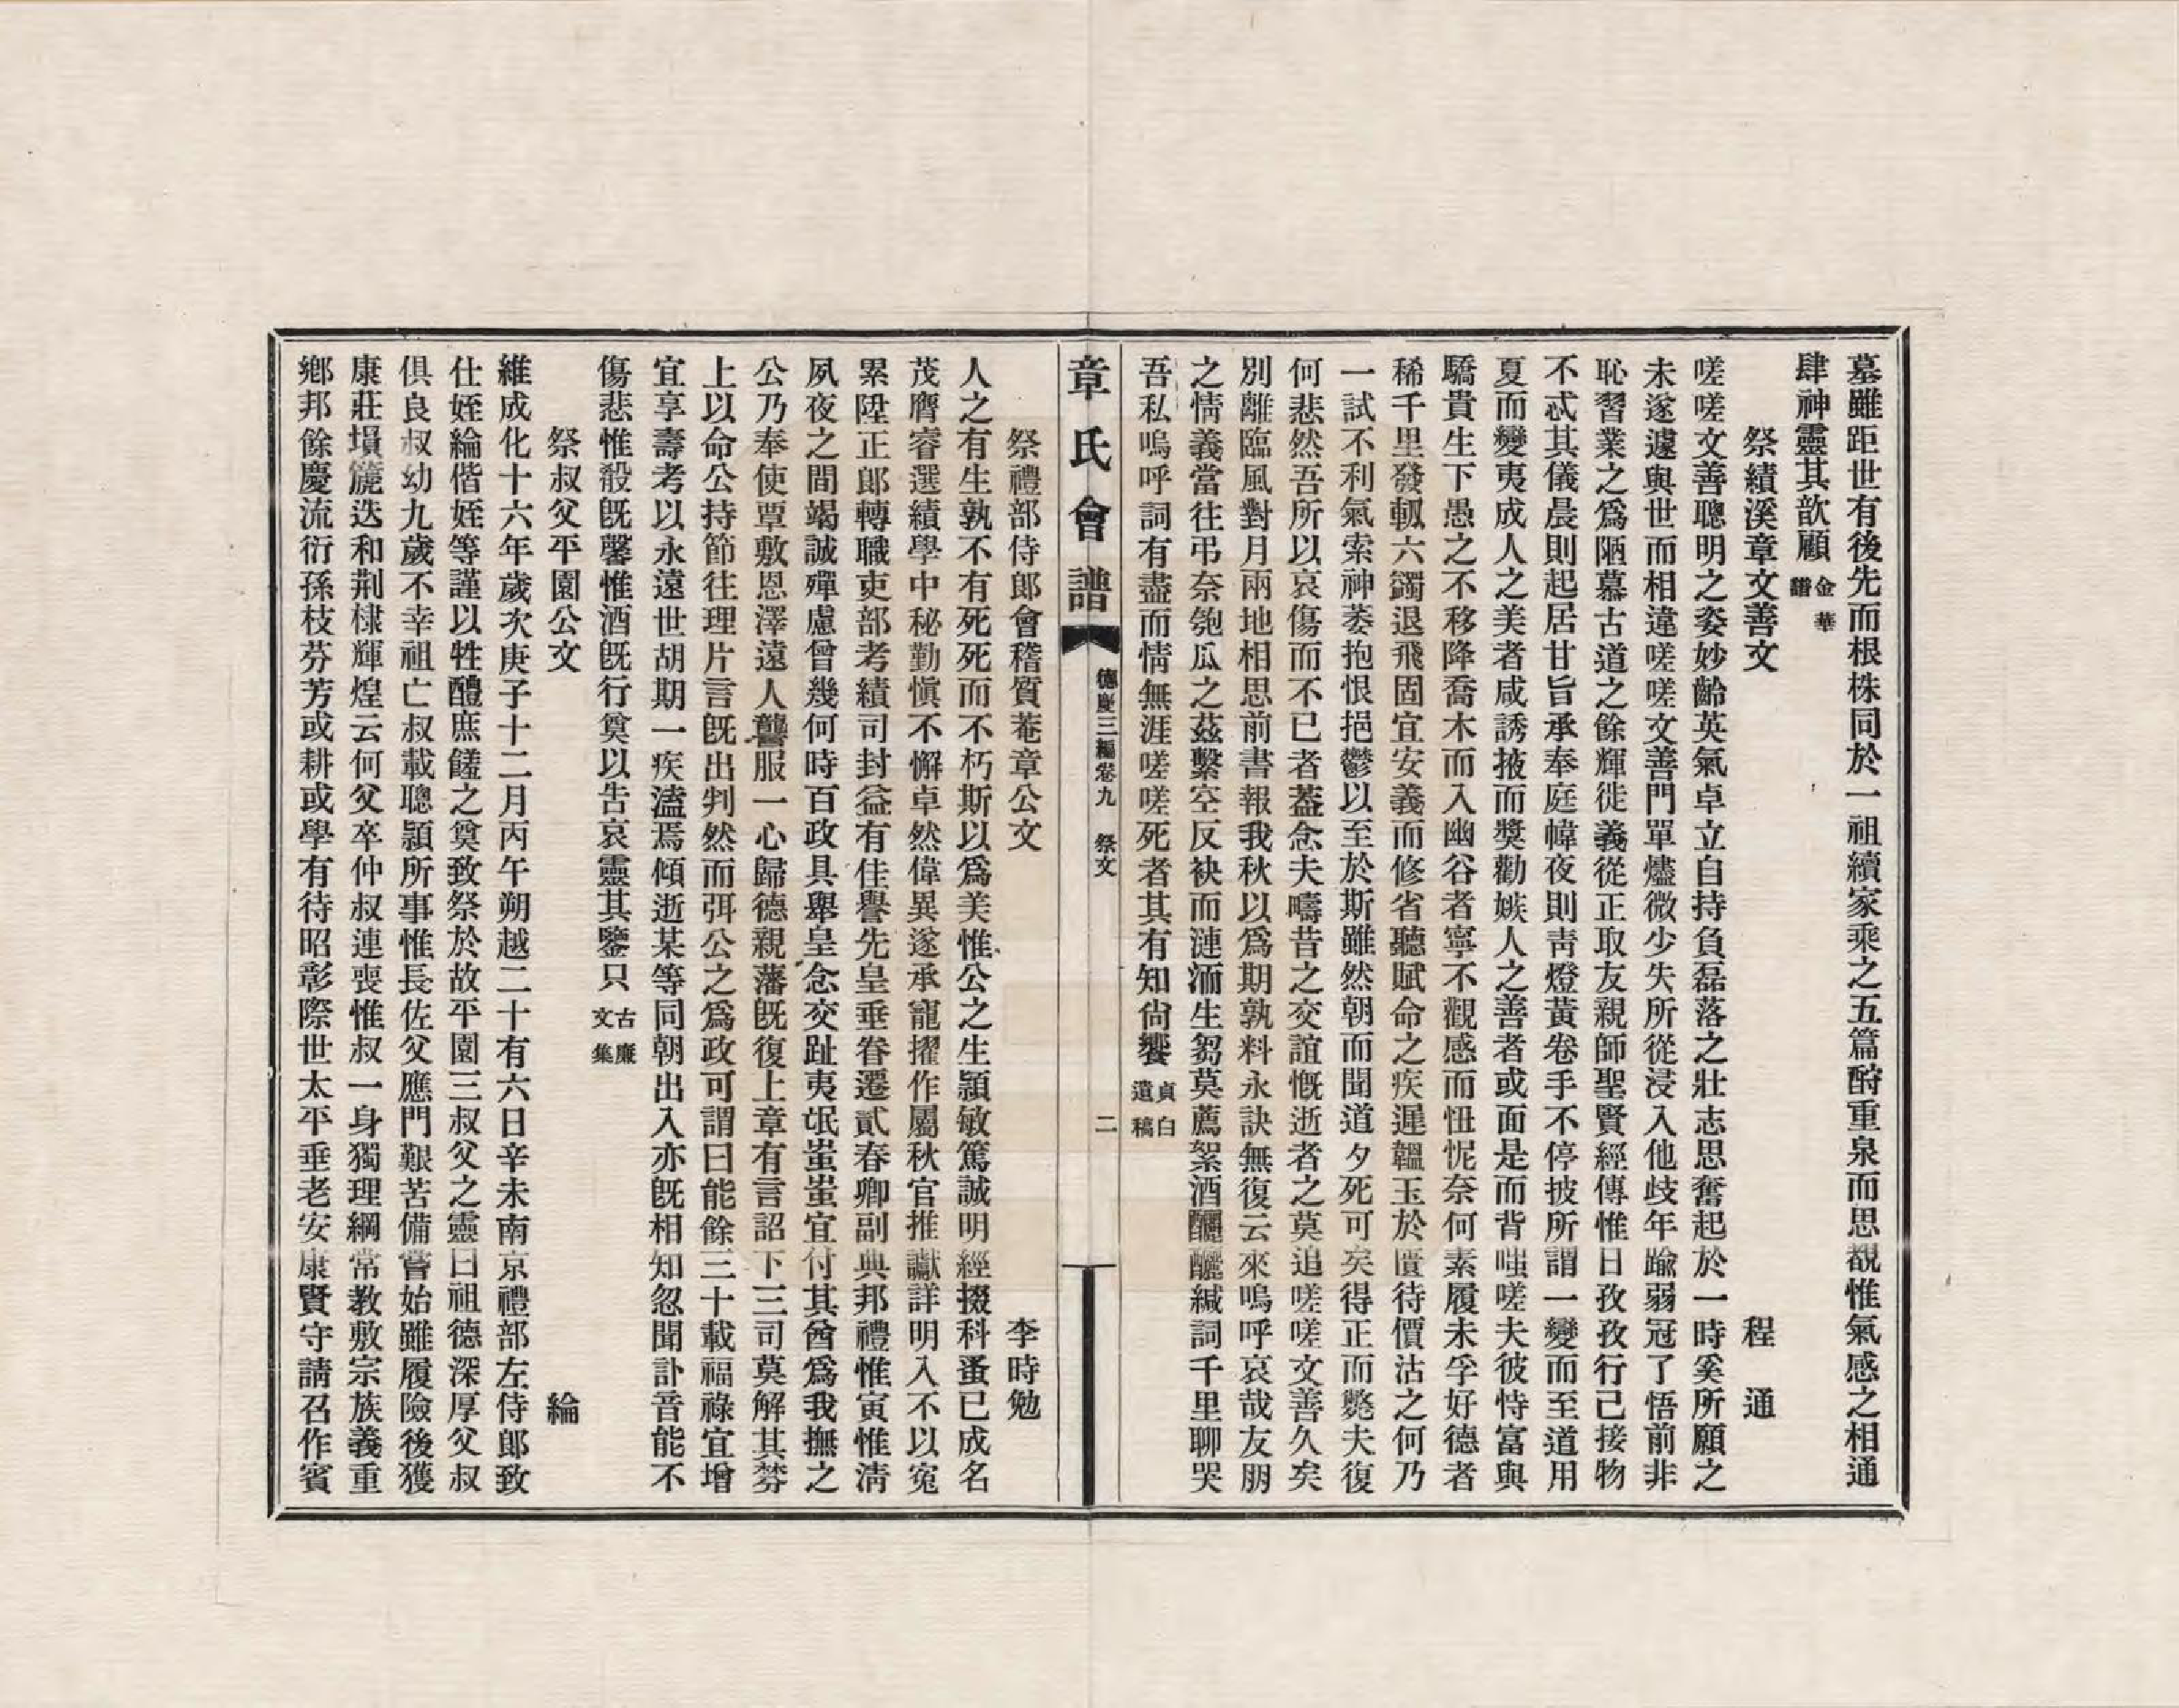 墓雖距世有後先而根株同於一祖續家乘之五篇酹重泉而思覩惟氣感之相通
肆神靈其歆顧金華譜
祭績溪章文善文　程通
嗟嗟文善聰明之姿妙齡英氣卓立自持負磊落之壯志思奮起於一時奚所願之
未遂遽與世而相違嗟嗟文善門單燼微少失所從浸入他歧年踰弱冠了悟前非
恥習業之爲陋慕古道之餘輝徙義從正取友親師聖賢經傳惟日孜孜行己接物
不忒其儀晨則起居甘旨承奉庭幃夜則靑燈黃卷手不停披所謂一變而至道用
夏而變夷成人之美者咸誘掖而獎勸嫉人之善者或面是而背嗤嗟夫彼恃富與
驕貴生下愚之不移降喬木而入幽谷者寧不觀感而忸怩奈何素履未孚好德者
稀千里發軔六鷁退飛固宜安義而修省聽賦命之疾遲韞玉於匱待價沽之何乃
一試不利氣索神萎抱恨挹鬱以至於斯雖然朝而聞道夕死可矣得正而斃夫復
何悲然吾所以哀傷而不已者蓋念夫疇昔之交誼慨逝者之莫追嗟嗟文善久矣
別離臨風對月兩地相思前書報我秋以爲期孰料永訣無復云來嗚呼哀哉友朋
之情義當往弔奈匏瓜之茲繫空反袂而漣洏生芻莫薦絮酒釃緘詞千里聊哭
吾私嗚呼詞有盡而情無涯嗟嗟死者其有知尙饗貞白遺稿
章氏會譜　德慶三編卷九　祭文　二
祭禮部侍郎會稽質菴章公文　李時勉
人之有生孰不有死死而不朽斯以爲美惟公之生穎敏篤誠明經掇科蚤已成名
茂膺睿選績學中秘勤愼不懈卓然偉異遂承寵擢作屬秋官推讞詳明入不以寃
累陞正郎轉職吏部考績司封益有佳譽先皇垂眷遷貳春卿副典邦禮惟寅惟淸
夙夜之間竭誠殫慮曾幾何時百政具舉皇念交趾夷氓蚩蚩宜付其酋爲我撫之
公乃奉使覃敷恩澤遠人讋服一心歸德親藩旣復上章有言詔下三司莫解其棼
上以命公持節往理片言旣出判然而弭公之爲政可謂曰能餘三十載福祿宜增
宜享壽考以永遠世胡期一疾溘焉傾逝某等同朝出入亦旣相知忽聞訃音能不
傷悲惟殽旣馨惟酒旣行奠以吿哀靈其鑒只古廉文集
祭叔父平園公文　綸
維成化十六年歲次庚子十二月丙午朔越二十有六日辛未南京禮部左侍郎致
仕姪綸偕姪等謹以牲醴庶饈之奠致祭於故平園三叔父之靈曰祖德深厚父叔
俱良叔幼九歲不幸祖亡叔載聰穎所事惟長佐父應門艱苦備嘗始雖履險後獲
康莊塤篪迭和荆棣輝煌云何父卒仲叔連喪惟叔一身獨理綱常教敷宗族義重
鄉邦餘慶流衍孫枝芬芳或耕或學有待昭彰際世太平垂老安康賢守請召作賓